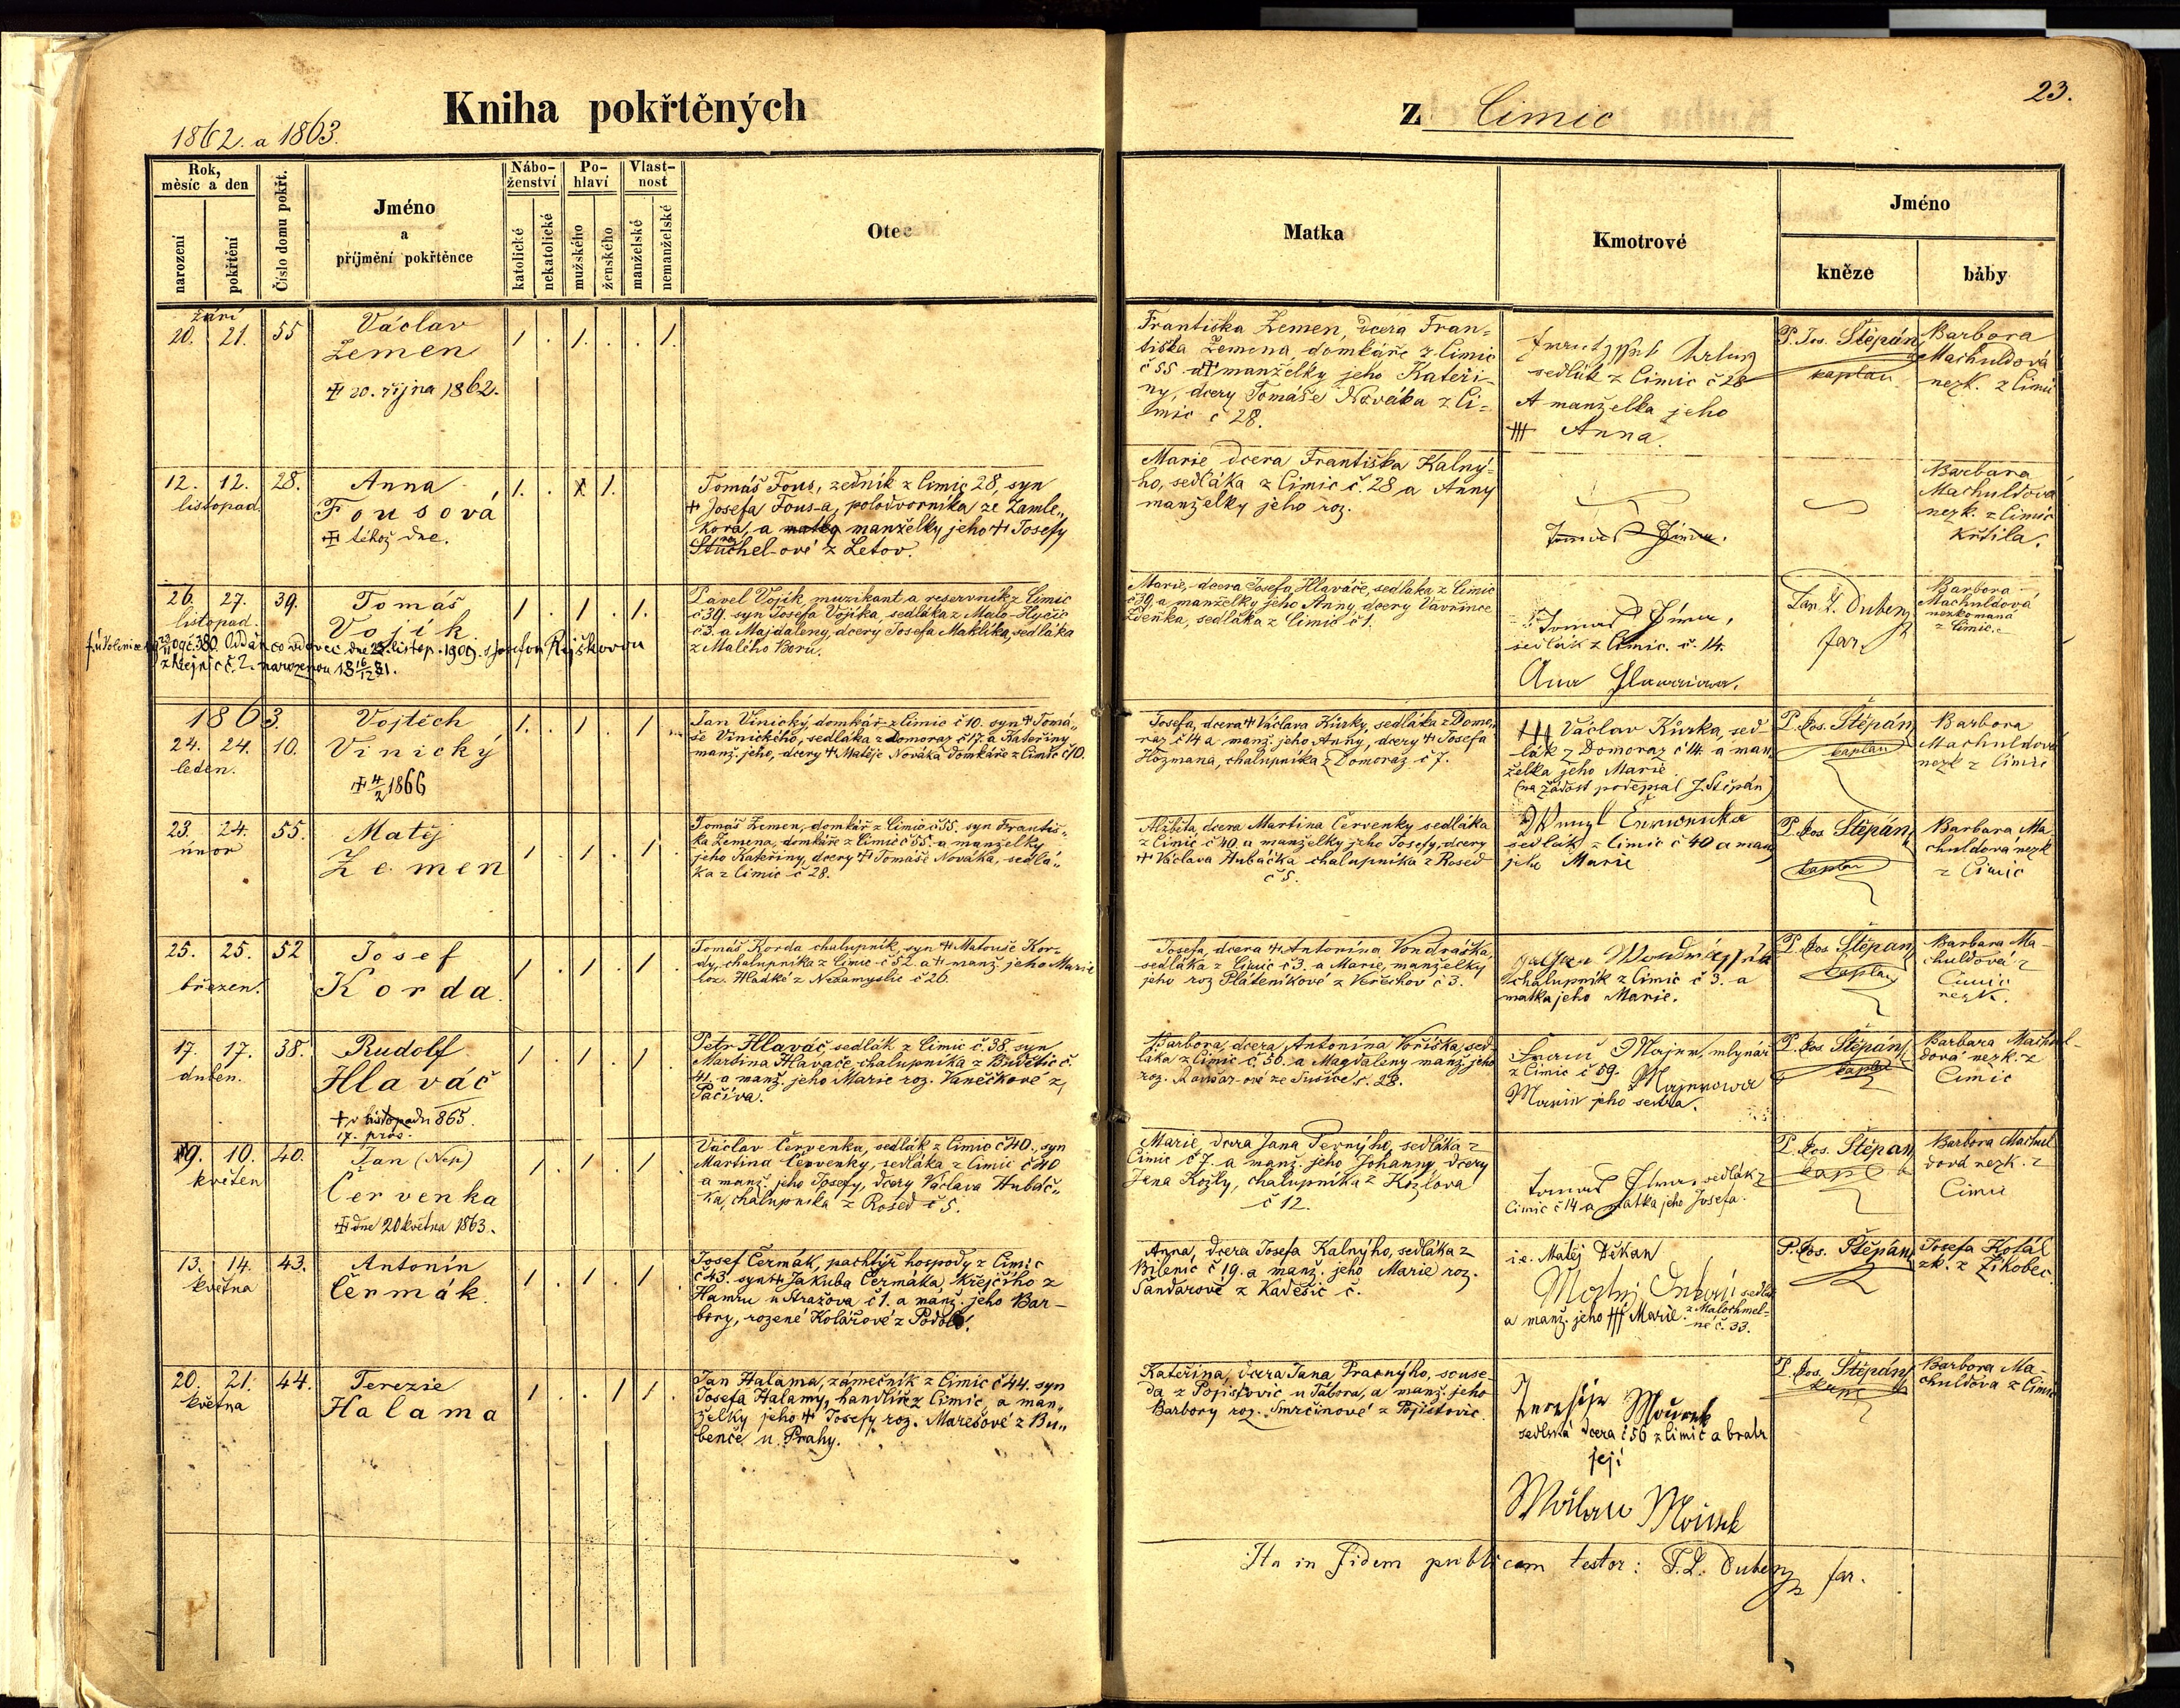 Kniha pokřtěných
1862. a 1863.
Rok,
měsíc a den
narození
pokřtění
Číslo domu pokřt.
Jméno
a
příjmění pokřtěnce
Nábo-
ženství
katolické
nekatolické
Po-
hlaví
mužského
ženského
Vlast-
nost
manželské
nemanželské
Otec
z Cimic
23.
Matka
Kmotrové
Jméno
kněze
báby
září
20. 21. 55
Václav
Zemen
20. října 1862.
1 . 1. . . 1.
Františka Zemen, dcera Fran-
tiška Zemena, domkáře z Cimic
č 55 a manželky jeho Kateři-
ny, dcery Tomáše Nováka z Ci-
mic č 28.
sedlák z Cimic č 28
A manželka jeho
††† Anna.
P. Jos. Štěpán
kaplan
Barbora
Machuldová
nezk. z Cimic
12. 12. 28.
listopad.
Anna
Fousova
téhož dne.
1. . 1.
Tomáš Fous, zedník z Cimic 28, syn
† Josefa Fous-a, polodvorníka ze Zamle„
kora, a matky manželky jeho † Josefy
roz.
Stuchel-ové z Letov.
Marie dcera Františka Kalný-
ho, sedláka z Cimic č. 28 a Anny
manželky jeho roz.
Barbara
Machuldová
nezk. z Cimic
křtila.
26. 27. 39.
listopad.
Tomáš
Vojík
1 . 1 . 1.
Pavel Vojík, muzikant a reservník z Cimic
č 39. syn Josefa Vojíka, sedláka z Malo-Hyčic
č 3. a Majdaleny, dcery Josefa Maklíka, sedláka
z Malého Boru.
Oddán co vdovec dne 23. listop. 1909. s Josefou Ryškovou
č. 2. narozenou 18 16/12 81.
Marie, dcera Josefa Hlaváče, sedláka z Cimic
č 39, a manželky jeho Anny, dcery Vavřince
Zdeňka, sedláka z Cimic č 1.
Tomáš Jíma,
sedlák z Cimic. č. 14.
Ana Hlawaiowa,
Jan L. Dubenz
far.
Barbora
Machuldová
nezkomaná
z Cimic.
1863.
24. 24. 10.
leden.
Vojtěch
Vinický
4/2 1866
1. . 1 . 1
Jan Vinický, domkář z Cimic č 10. syn † Tomá-
še Vinického, sedláka z Domoraz č 17. a Kateřiny
manž. jeho, dcery † Matěje Nováka domkáře z Cimic č 10.
Josefa, dcera † Václava Kůrky, sedláka z Domo-
raz č 14 a manž. jeho Anny, dcery † Josefa
Hozmana, chalupníka z Domoraz č 7.
††† Václav Kůrka, sed-
lák z Domoraz č 14. a man-
želka jeho Marie
(na žádost podepsal J. Štěpán)
P. Jos. Štěpán
kaplan
Barbora
Machuldová
nezk z Cimic
23. 24. 55.
únor
Matěj
Zemen
1 . 1 . 1 .
Tomáš Zemen, domkář z Cimic č 55. syn Františ„
ka Zemena, domkáře z Cimic č 55. a manželky
jeho Kateřiny, dcery † Tomáše Nováka, sedlá„
ka z Cimic č 28.
Alžběta, dcera Martina Červenky sedláka
z Cimic č 40. a manželky jeho Josefy, dcery
† Václava Hubačka chalupníka z Rosed
č 5.
sedlák z Cimic č 40 a manž
jeho Marie
P. Jos Štěpán,
kaplan
Barbara Ma-
chuldova nezk
z Cimic
25. 25. 52
březen.
Josef
Korda.
1 . 1 . 1 .
Tomáš Korda chalupník, syn † Matouše Kor-
dy, chalupníka z Cimic č 52. a † manž. jeho Marie
roz. Hladké z Nezamyslic č 26.
Josefa, dcera † Antonína Vondrašky,
sedláka z Cimic č 3. a Marie, manželky
jeho roz Pláteníkové z Verechov č 3.
chalupník z Cimic č 3. a
matka jeho Marie.
P. Jos. Štěpán
kaplan
Barbara Ma-
chuldová z
Cimic
nezk.
17. 17. 38.
duben.
Rudolf
Hlaváč
† v listopadu 865.
17. pros.
1 . 1 . 1
Petr Hlaváč, sedlák z Cimic č. 38. syn
Martina Hlaváče, chalupníka z Budětic č.
41. a manž. jeho Marie roz. Vaněčkové z
Pačiva.
Barbora, dcera Antonína Voříška, sed
láka z Cimic č. 56. a Magdaleny manž. jeho
roz. ze Sušice č. 28.
mlynář
z Cimic č 59.
jeho sestra.
P. Jos Štěpán
kaplan
Barbara Machul-
dová nezk. z
Cimic
9. 10. 40.
květen
Jan (Nep)
Červenka
dne 20 května 1863.
1 . 1 . 1
Václav Červenka, sedlák z Cimic č 40., syn
Martina Červenky, sedláka z Cimic č 40
a manž. jeho Josefy, dcery Václava Hubač„
ka, chalupníka z Rosed č 5.
Marie, dcera Jana Perného, sedláka z
Cimic č 7. a manž. jeho Johanny, dcery
Jana Kozly, chalupníka z Kozlova
č 12.
Tomáš Jíma, sedlák z
Cimic č 14 a matka jeho Josefa.
P. Jos. Štěpán
kapl
Barbora Machul
dová nezk. z
Cimic
13. 14. 43.
května
Antonín
Čermák.
1 . 1 . 1
Josef Čermák, pachtýř hospody z Cimic
č 43. syn † Jakuba Čermáka, krejčího z
Hamru u Stražova č 1. a manž. jeho Bar-
bory, rozené Kolářové z
Anna, dcera Josefa Kalnýho, sedláka z
Bílenic č 19. a manž. jeho Marie roz.
Šandarové z Kadešic č.
i.e. Matěj Děkan
sedlák
a manž. jeho ††† Marie. z Malochmel-
né č. 33.
P. Jos. Štěpán
Josefa Kotál
zk. z Žikobec.
20. 21. 44.
května
Terezie
Halama
1 . . 1 1 .
Jan Halama, zámečník z Cimic č 44. syn
Josefa Halamy, handlíře z Cimic, a man„
želky jeho † Josefy roz. Marešové z Bu„
benče u Prahy.
Kateřina, dcera Jana Pracnýho, souse-
da z Popistovic u Tábora, a manž. jeho
Barbory roz. Smrčinové z Pojistovic.
Mourek
sedlská dcera č 56 z Cimic a bratr
její
P. Jos. Štěpán
kapl
Barbora Ma-
chuldova z Cimic
Ita in fidem publicam testor: J. L. Dubenz far.